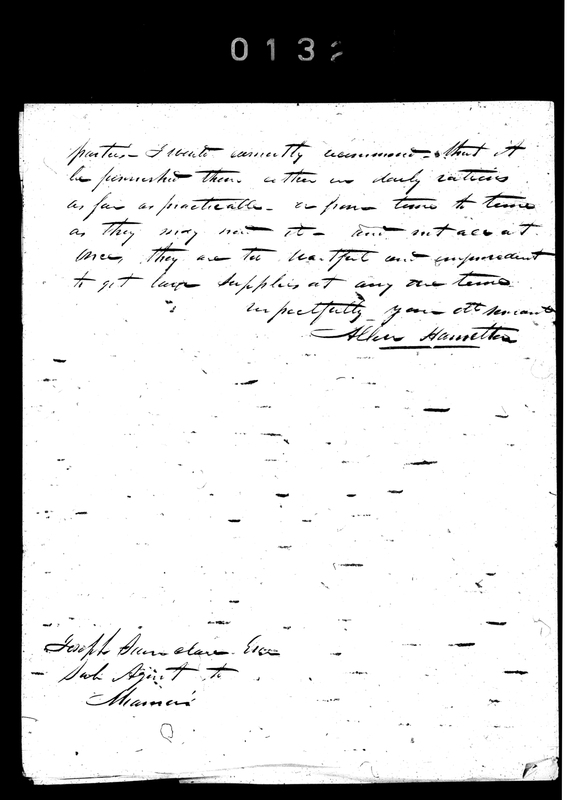 0132
parties. I would earnestly recommend. that it
be furnished them either in daily rations
as far as practicable. or from time to time
as they may need it - and not all at
once, they are too wastful and imprudent
to get large supplies at any one time
respectfully your obt servant
Allen Hamilton
Joseph Sinclair Esqr
Sub Agent to
Miamies